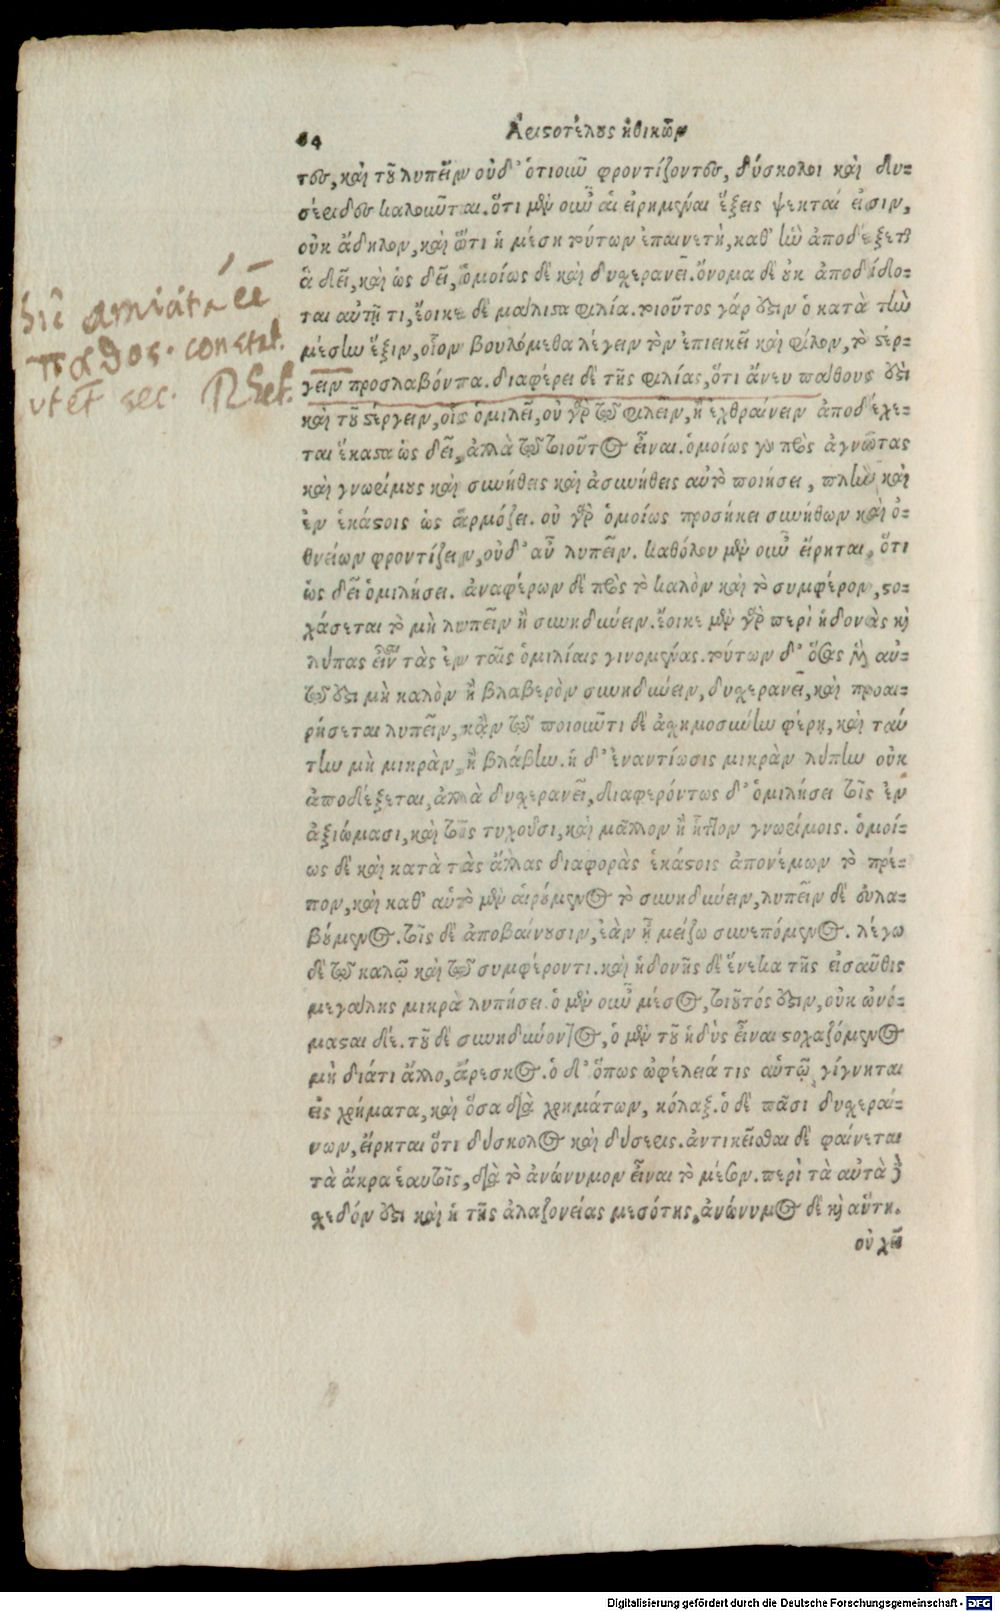 84 Ἀριστοτέλους ἠθικῶν
τες, καὶ τοῦ λυπεῖν οὐδ' ὁτιοῦν φροντίζοντες, δύσκολοι καὶ δυσ-
έριδες καλοῦνται. ὅτι μὲν οὖν αἱ εἰρημέναι ἕξεις ψεκταί εἰσιν,
οὐκ ἄδηλον, καὶ ὅτι ἡ μέση τούτων ἐπαινετὴ, καθ' ἣν ἀποδέξεται
ἃ δεῖ, καὶ ὡς δεῖ, ὁμοίως δὲ καὶ δυσχερανεῖ. ὄνομα δὲ οὐκ ἀποδίδο-
ται αὐτῇ τι, ἔοικε δὲ μάλιστα φιλία. τοιοῦτος γάρ ἐστιν ὁ κατὰ τὴν
μέσην ἕξιν, οἷον βουλόμεθα λέγειν τὸν ἐπιεικῆ καὶ φίλον, τὸ στέρ-
γειν προσλαβόντα. διαφέρει δὲ τῆς φιλίας, ὅτι ἄνευ πάθους ἐστὶ
καὶ τοῦ στέργειν, οἷς ὁμιλεῖ, οὐ γὰρ τῷ φιλεῖν, ἢ ἐχθραίνειν ἀποδέχε-
ται ἕκαστα ὡς δεῖ, ἀλλὰ τῷ τοιοῦτος εἶναι. ὁμοίως γὰρ πρὸς ἀγνῶτας
καὶ γνωρίμους καὶ συνήθεις καὶ ἀσυνήθεις αὐτὸ ποιήσει, πλὴν καὶ
ἐν ἑκάστοις ὡς ἁρμόζει. οὐ γὰρ ὁμοίως προσήκει συνήθων καὶ ὀ-
θνείων φροντίζειν, οὐδ' αὖ λυπεῖν. καθόλου μὲν οὖν εἴρηται, ὅτι
ὡς δεῖ ὁμιλήσει. ἀναφέρων δὲ πρὸς τὸ καλὸν καὶ τὸ συμφέρον, στο-
χάσεται τὸ μὴ λυπεῖν ἢ συνηδύνειν. ἔοικε μὲν γὰρ περὶ ἡδονὰς καὶ
λύπας εἶναι τὰς ἐν ταῖς ὁμιλίαις γινομένας. τούτων δ' ὅσας μὲν αὐ-
τῷ ἐστι μὴ καλὸν ἢ βλαβερὸν συνηδύνειν, δυσχερανεῖ, καὶ προαι-
ρήσεται λυπεῖν, κἂν τῷ ποιοῦντι δὲ ἀσχημοσύνην φέρῃ, καὶ ταύ
την μὴ μικρὰν, ἢ βλάβην. ἡ δ' ἐναντίωσις μικρὰν λύπην οὐκ
ἀποδέξεται, ἀλλὰ δυσχερανεῖ, διαφερόντως δ' ὁμιλήσει τοῖς ἐν
ἀξιώμασι, καὶ τοῖς τυχοῦσι, καὶ μᾶλλον ἢ ἧττον γνωρίμοις. ὁμοί-
ως δὲ καὶ κατὰ τὰς ἄλλας διαφορὰς ἑκάστοις ἀπονέμων τὸ πρέ-
πον, καὶ καθ' αὑτὸ μὲν αἱρούμενος τὸ συνηδύνειν, λυπεῖν δὲ εὐλα-
βούμενος. τοῖς δὲ ἀποβαίνουσιν, ἐὰν ᾖ μείζω συνεπόμενος. λέγω
δὲ τῷ καλῷ καὶ τῷ συμφέροντι. καὶ ἡδονῆς δὲ ἕνεκα τῆς εἰσαῦθις
μεγάλης μικρὰ λυπήσει. ὁ μὲν οὖν μέσος, τοιοῦτός ἐστιν, οὐκ ὠνό-
μασται δέ. τοῦ δὲ συνηδύνοντος, ὁ μὲν τοῦ ἡδὺς εἶναι στοχαζόμενος
μὴ διάτι ἄλλο, ἄρεσκος. ὁ δ' ὅπως ὠφέλειά τις αὑτῷ γίγνηται
εἰς χρήματα, καὶ ὅσα διὰ χρημάτων, κόλαξ. ὁ δὲ πᾶσι δυσχεραί-
νων, εἴρηται ὅτι δύσκολος καὶ δύσερις. ἀντικεῖσθαι δὲ φαίνεται
τὰ ἄκρα ἑαυτοῖς, διὰ τὸ ἀνώνυμον εἶναι τὸ μέσον. περὶ τὰ αὐτὰ δὲ
σχεδόν ἐστι καὶ ἡ τῆς ἀλαζονείας μεσότης, ἀνώνυμος δὲ καὶ αὕτη.
οὐ χεῖ
hic amicitia ēē
παθος. constat.
utet sec. Rhet.
Digitalisierung gefördert durch die Deutsche Forschungsgemeinschaft - DFG